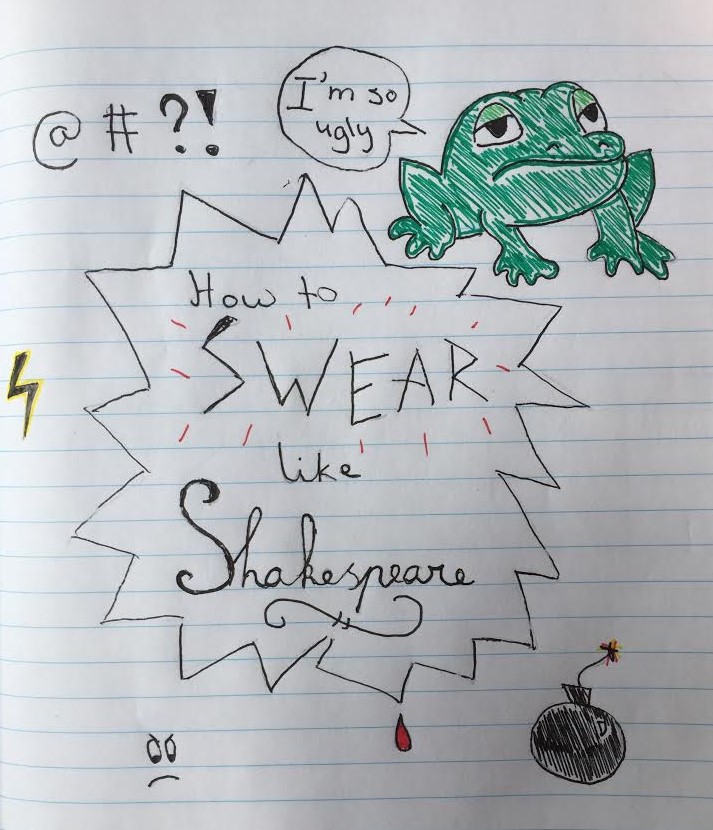 @ # ?!
I'm so
ugly
How to
SWEAR
like
Shakespeare